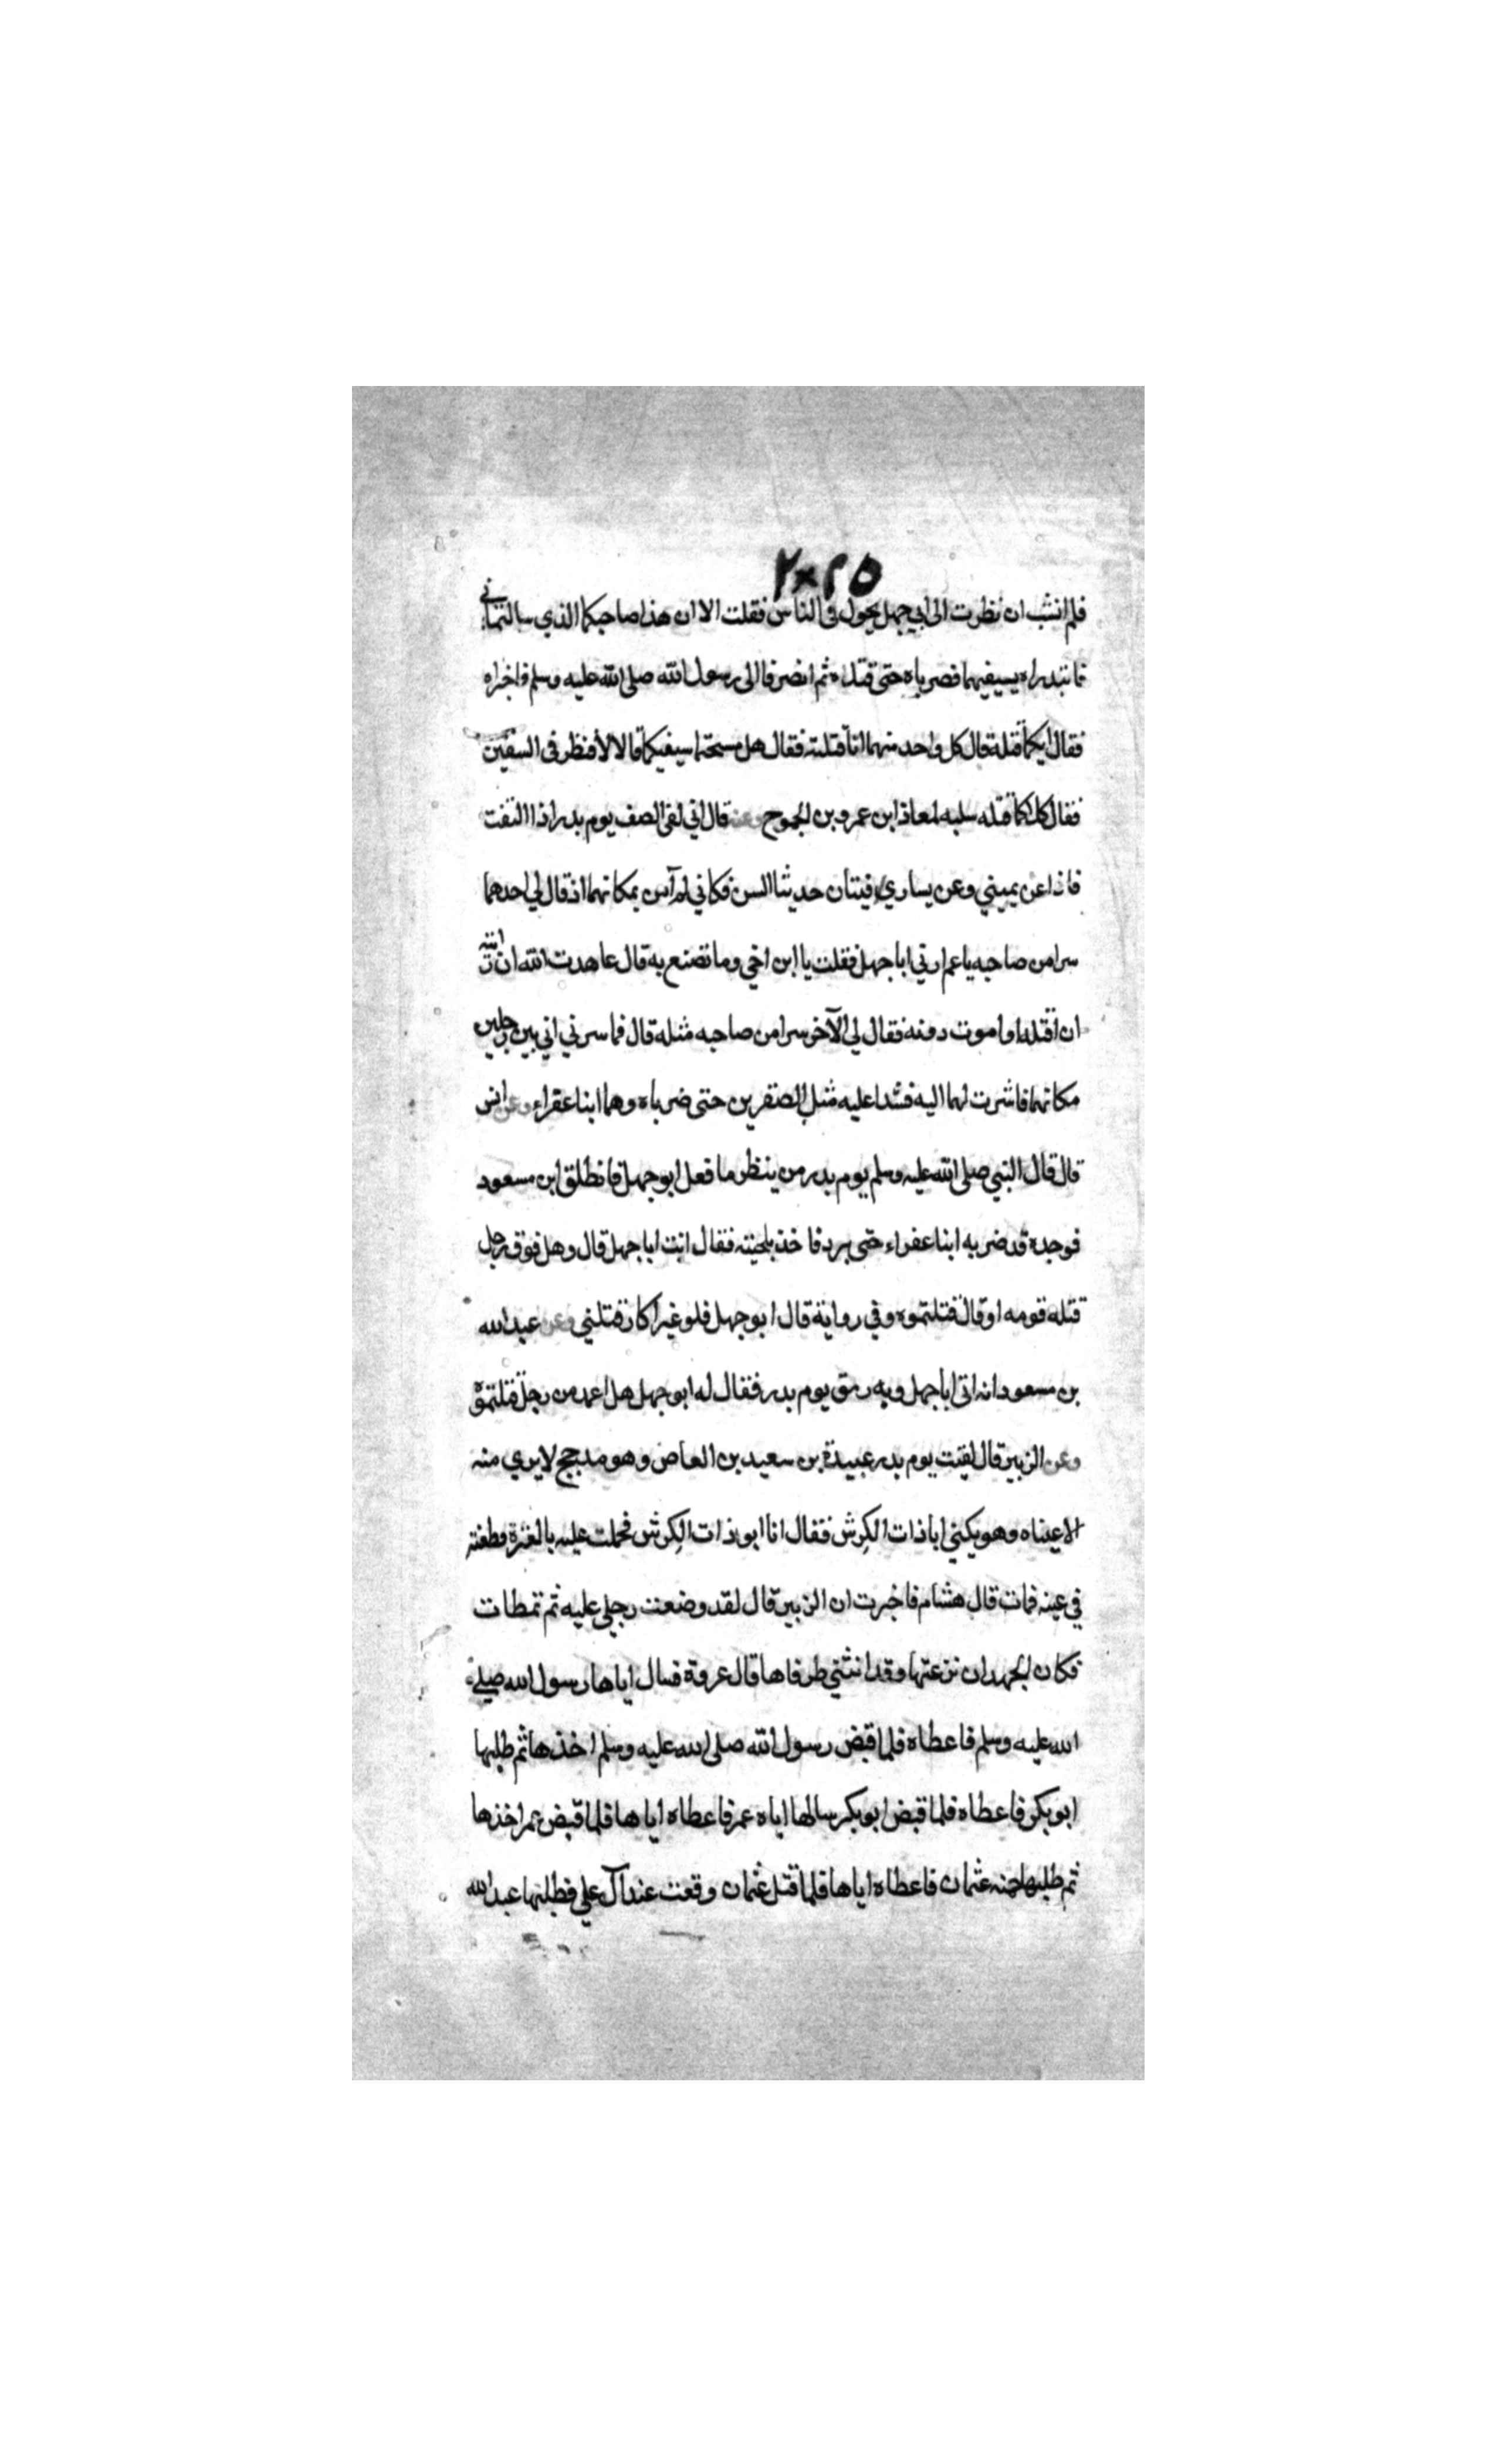 ٢×٢٥
فلم انشب ان نظرت الى ابي جهل يجول في الناس فقلت الا ان هذا صاحبكما الذي سالتماني
فابتدراه بسيفيهما فضرباه حتى قتلاه ثم انصرفا الى رسول الله صلى الله عليه وسلم فاخبراه
فقال ايكما قتله قال كل واحد منهما انا قتلته فقال هل مسحتما سيفيكما قالا لا فنظر في السيفين
فقال كلاكما قتله سلبه لمعاذ ابن عمرو بن الجموح وعنه قال اني لفي الصف يوم بدر اذا التفت
فاذا عن يميني وعن يساري فتيان حديثا السن فكاني لم آمن بمكانهما اذ قال لي احدهما
سرا من صاحبه يا عم ارني ابا جهل فقلت يا ابن اخي وما تصنع به قال عاهدت الله ان رايته
ان اقتله او اموت دونه فقال لي الآخر سرا من صاحبه مثله قال فما سرني اني بين رجلين
مكانهما فاشرت لهما اليه فشدا عليه مثل الصقرين حتى ضرباه وهما ابنا عفراء وعن انس
قال قال النبي صلى الله عليه وسلم يوم بدر من ينظر ما فعل ابو جهل فانطلق ابن مسعود
فوجده قد ضربه ابنا عفراء حتى برد فاخذ بلحيته فقال انت ابا جهل قال وهل فوق رجل
قتله قومه او قال قتلتموه وفي رواية قال ابو جهل فلو غير اكار قتلني وعن عبد الله
بن مسعود انه اتى ابا جهل وبه رمق يوم بدر فقال له ابو جهل هل اعمد من رجل قتلتموه
وعن الزبير قال لقيت يوم بدر عبيدة بن سعيد بن العاص وهو مدجج لا يرى منه
الا عيناه وهو يكنى ابا ذات الكرش فقال انا ابو ذات الكرش فحملت عليه بالعنزة فطعنته
في عينه فمات قال هشام فاخبرت ان الزبير قال لقد وضعت رجلي عليه ثم تمطات
فكان الجهد ان نزعتها وقد انثنى طرفاها قال عروة فسال اياها رسول الله صلى
الله عليه وسلم فاعطاه فلما قبض رسول الله صلى الله عليه وسلم اخذها ثم طلبها
ابو بكر فاعطاه فلما قبض ابو بكر سالها اياه عمر فاعطاه اياها فلما قبض عمر اخذها
ثم طلبها منه عثمان فاعطاه اياها فلما قتل عثمان وقعت عند آل علي فطلبها عبد الله